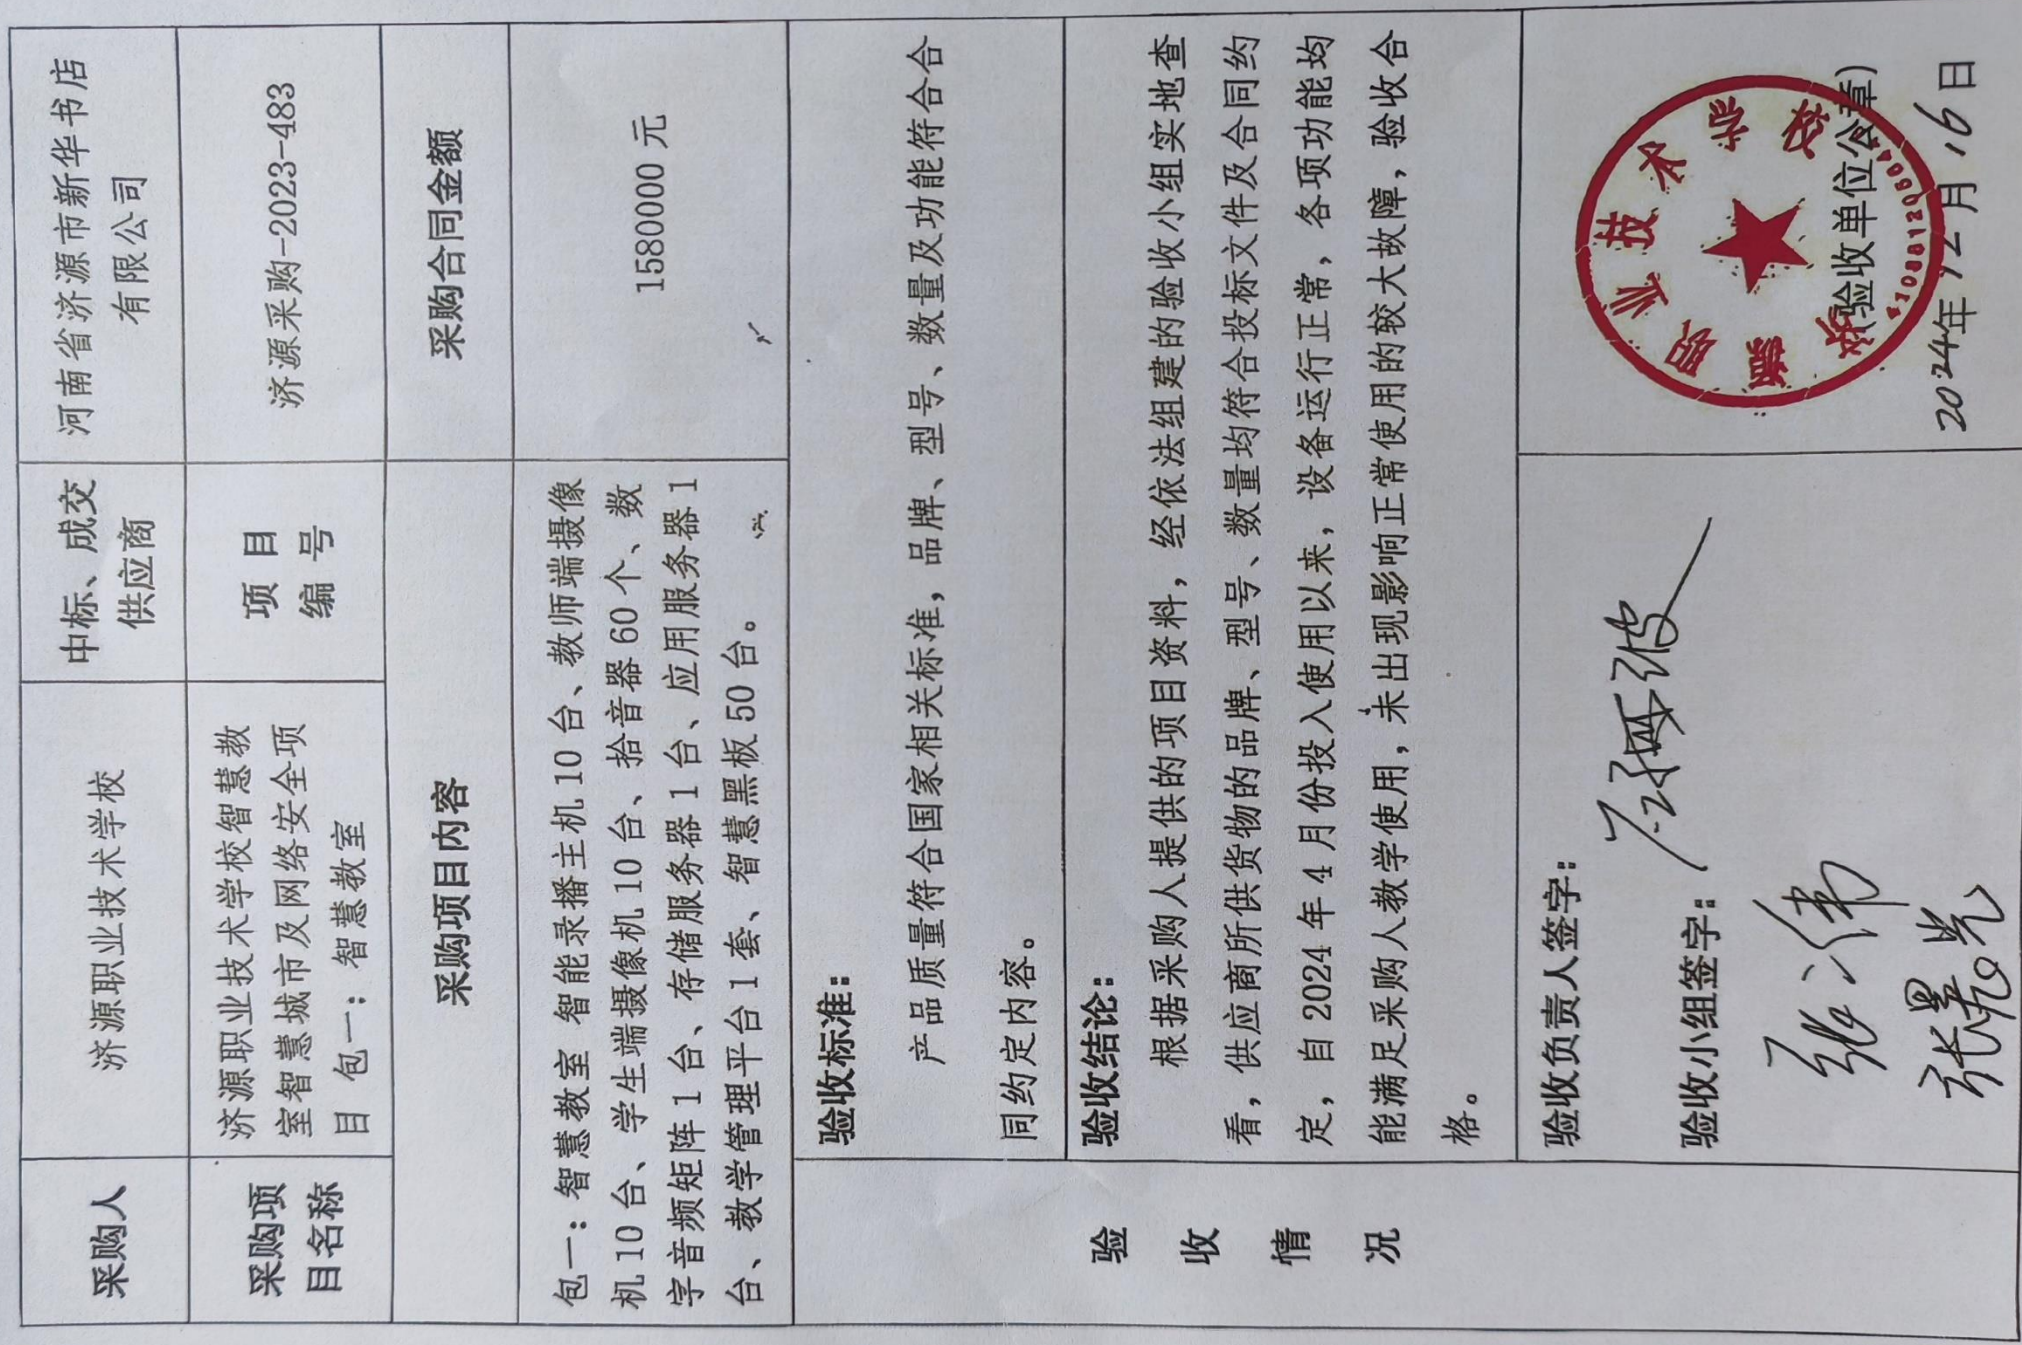 采购人
济源职业技术学校
中标、成交
供应商
河南省济源市新华书店
有限公司
采购项
目名称
济源职业技术学校智慧教
室智慧城市及网络安全项
目 包一：智慧教室
项 目
编 号
济源采购-2023-483
采购项目内容
采购合同金额
包一：智慧教室 智能录播主机 10 台、教师端摄像
机 10 台、学生端摄像机 10 台、拾音器 60 个、数
字音频矩阵 1 台、存储服务器 1 台、应用服务器 1
台、教学管理平台 1 套、智慧黑板 50 台。
1580000 元
验
收
情
况
验收标准：
产品质量符合国家相关标准，品牌、型号、数量及功能符合合
同约定内容。
验收结论：
根据采购人提供的项目资料，经依法组建的验收小组实地查
看，供应商所供货物的品牌、型号、数量均符合投标文件及合同约
定，自 2024 年 4 月份投入使用以来，设备运行正常，各项功能均
能满足采购人教学使用，未出现影响正常使用的较大故障，验收合
格。
验收负责人签字：
验收小组签字：
张沛
济源职业技术学校
(验收单位公章)
2024年12月16日